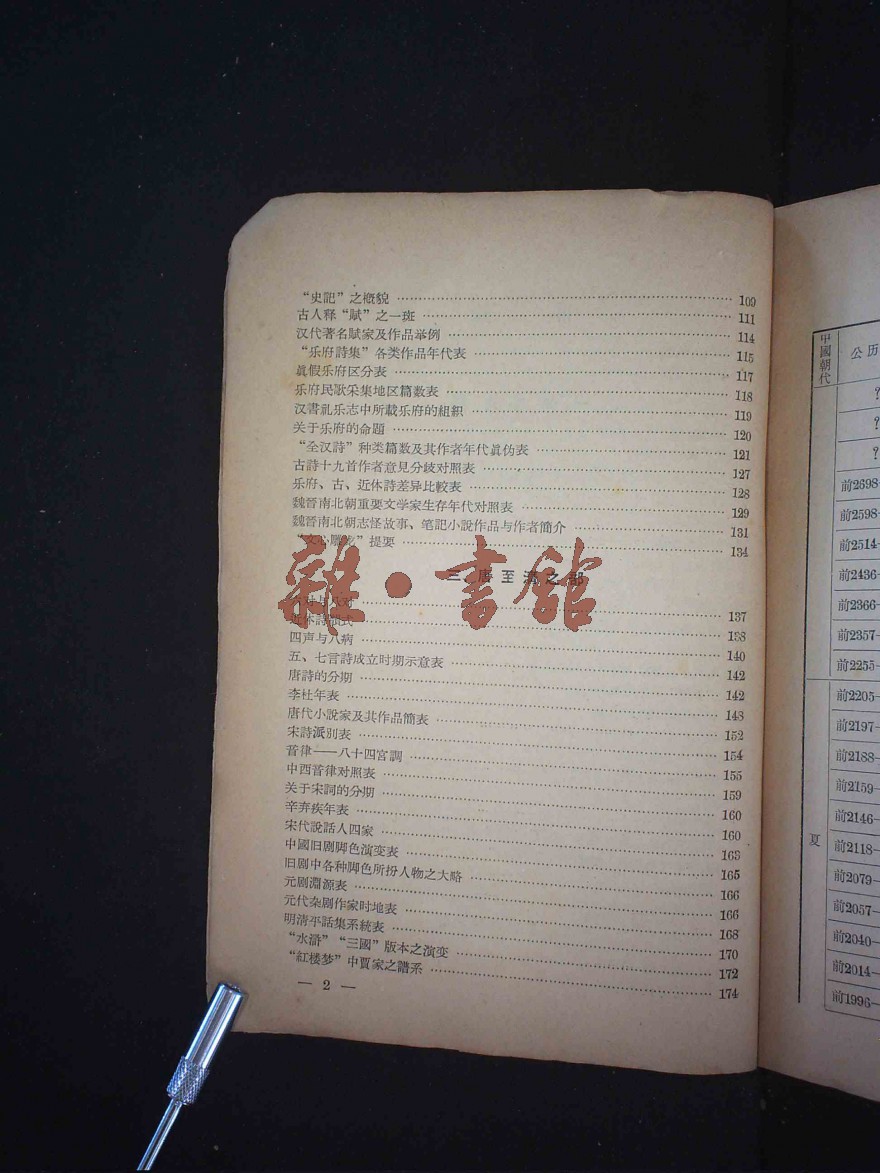 “史記”之概貌 109
古人释“賦”之一斑 111
汉代著名賦家及作品举例 114
“乐府詩集”各类作品年代表 115
眞假乐府区分表 117
乐府民歌采集地区篇数表 118
汉書礼乐志中所載乐府的組織 119
关于乐府的命題 120
“全汉詩”种类篇数及其作者年代眞伪表 121
古詩十九首作者意見分歧对照表 127
乐府、古、近体詩差异比較表 128
魏晉南北朝重要文学家生存年代对照表 129
魏晉南北朝志怪故事、笔記小說作品与作者簡介 131
“文心雕龙”提要 134
三、唐至清之部
六对与八对 137
近体詩格式 138
四声与八病 140
五、七言詩成立时期示意表 142
唐詩的分期 142
李杜年表 148
唐代小說家及其作品簡表 152
宋詩派別表 154
音律——八十四宮調 155
中西音律对照表 159
关于宋詞的分期 160
辛弃疾年表 160
宋代說話人四家 163
中國旧剧脚色演变表 165
旧剧中各种脚色所扮人物之大略 166
元剧淵源表 166
元代杂剧作家时地表 168
明清平話集系統表 170
“水滸”“三國”版本之演变 172
“紅楼梦”中賈家之譜系 174
— 2 —
雜·書館
中國朝代
公历
?
?
?
前2698–
前2598–
前2514–
前2436–
前2366–
前2357–
前2255–
夏
前2205–
前2197–
前2188–
前2159–
前2146–
前2118–
前2079–
前2057–
前2040–
前2014–
前1996–